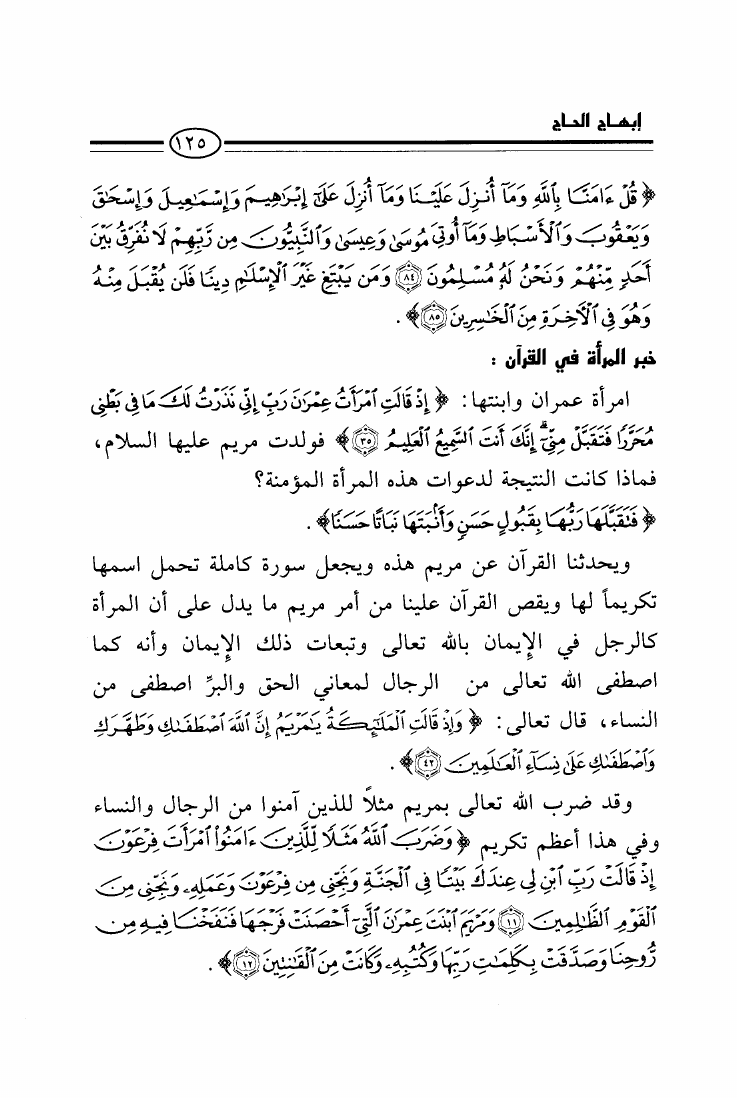 إبهـاج الحـاج
١٢٥
﴿ قُلْ ءَامَنَّا بِٱللَّهِ وَمَآ أُنزِلَ عَلَيْنَا وَمَآ أُنزِلَ عَلَىٰٓ إِبْرَٰهِيمَ وَإِسْمَٰعِيلَ وَإِسْحَٰقَ
وَيَعْقُوبَ وَٱلْأَسْبَاطِ وَمَآ أُوتِىَ مُوسَىٰ وَعِيسَىٰ وَٱلنَّبِيُّونَ مِن رَّبِّهِمْ لَا نُفَرِّقُ بَيْنَ
أَحَدٍ مِّنْهُمْ وَنَحْنُ لَهُۥ مُسْلِمُونَ ٨٤ وَمَن يَبْتَغِ غَيْرَ ٱلْإِسْلَٰمِ دِينًا فَلَن يُقْبَلَ مِنْهُ
وَهُوَ فِى ٱلْآخِرَةِ مِنَ ٱلْخَٰسِرِينَ ٨٥ ﴾ .
خبر المرأة في القرآن :
امرأة عمران وابنتها: ﴿ إِذْ قَالَتِ ٱمْرَأَتُ عِمْرَٰنَ رَبِّ إِنِّى نَذَرْتُ لَكَ مَا فِى بَطْنِى
مُحَرَّرًا فَتَقَبَّلْ مِنِّىٓ ۖ إِنَّكَ أَنتَ ٱلسَّمِيعُ ٱلْعَلِيمُ ٣٥ ﴾ فولدت مريم عليها السلام،
فماذا كانت النتيجة لدعوات هذه المرأة المؤمنة؟
﴿ فَتَقَبَّلَهَا رَبُّهَا بِقَبُولٍ حَسَنٍ وَأَنۢبَتَهَا نَبَاتًا حَسَنًا ﴾ .
ويحدثنا القرآن عن مريم هذه ويجعل سورة كاملة تحمل اسمها
تكريماً لها ويقص القرآن علينا من أمر مريم ما يدل على أن المرأة
كالرجل في الإيمان بالله تعالى وتبعات ذلك الإيمان وأنه كما
اصطفى الله تعالى من الرجال لمعاني الحق والبرِّ اصطفى من
النساء، قال تعالى: ﴿ وَإِذْ قَالَتِ ٱلْمَلَٰٓئِكَةُ يَٰمَرْيَمُ إِنَّ ٱللَّهَ ٱصْطَفَىٰكِ وَطَهَّرَكِ
وَٱصْطَفَىٰكِ عَلَىٰ نِسَآءِ ٱلْعَٰلَمِينَ ٤٢ ﴾ .
وقد ضرب الله تعالى بمريم مثلاً للذين آمنوا من الرجال والنساء
وفي هذا أعظم تكريم ﴿ وَضَرَبَ ٱللَّهُ مَثَلًا لِّلَّذِينَ ءَامَنُوا۟ ٱمْرَأَتَ فِرْعَوْنَ
إِذْ قَالَتْ رَبِّ ٱبْنِ لِى عِندَكَ بَيْتًا فِى ٱلْجَنَّةِ وَنَجِّنِى مِن فِرْعَوْنَ وَعَمَلِهِۦ وَنَجِّنِى مِنَ
ٱلْقَوْمِ ٱلظَّٰلِمِينَ ١١ وَمَرْيَمَ ٱبْنَتَ عِمْرَٰنَ ٱلَّتِىٓ أَحْصَنَتْ فَرْجَهَا فَنَفَخْنَا فِيهِ مِن
رُّوحِنَا وَصَدَّقَتْ بِكَلِمَٰتِ رَبِّهَا وَكُتُبِهِۦ وَكَانَتْ مِنَ ٱلْقَٰنِتِينَ ١٢ ﴾ .